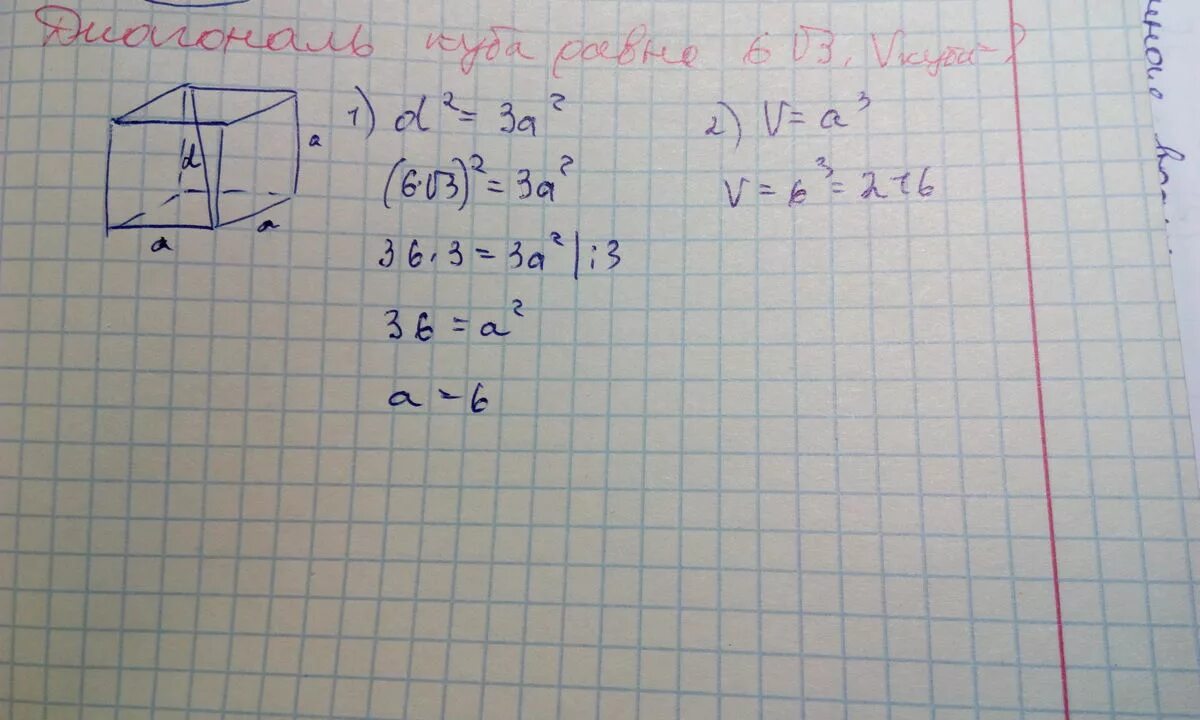 Диагональ куба равна 6√3, Vкуба-?
a
d
a
a
1) d² = 3a²
(6·√3)² = 3a²
36·3 = 3a² | :3
36 = a²
a = 6
2) V = a³
V = 6³ = 216